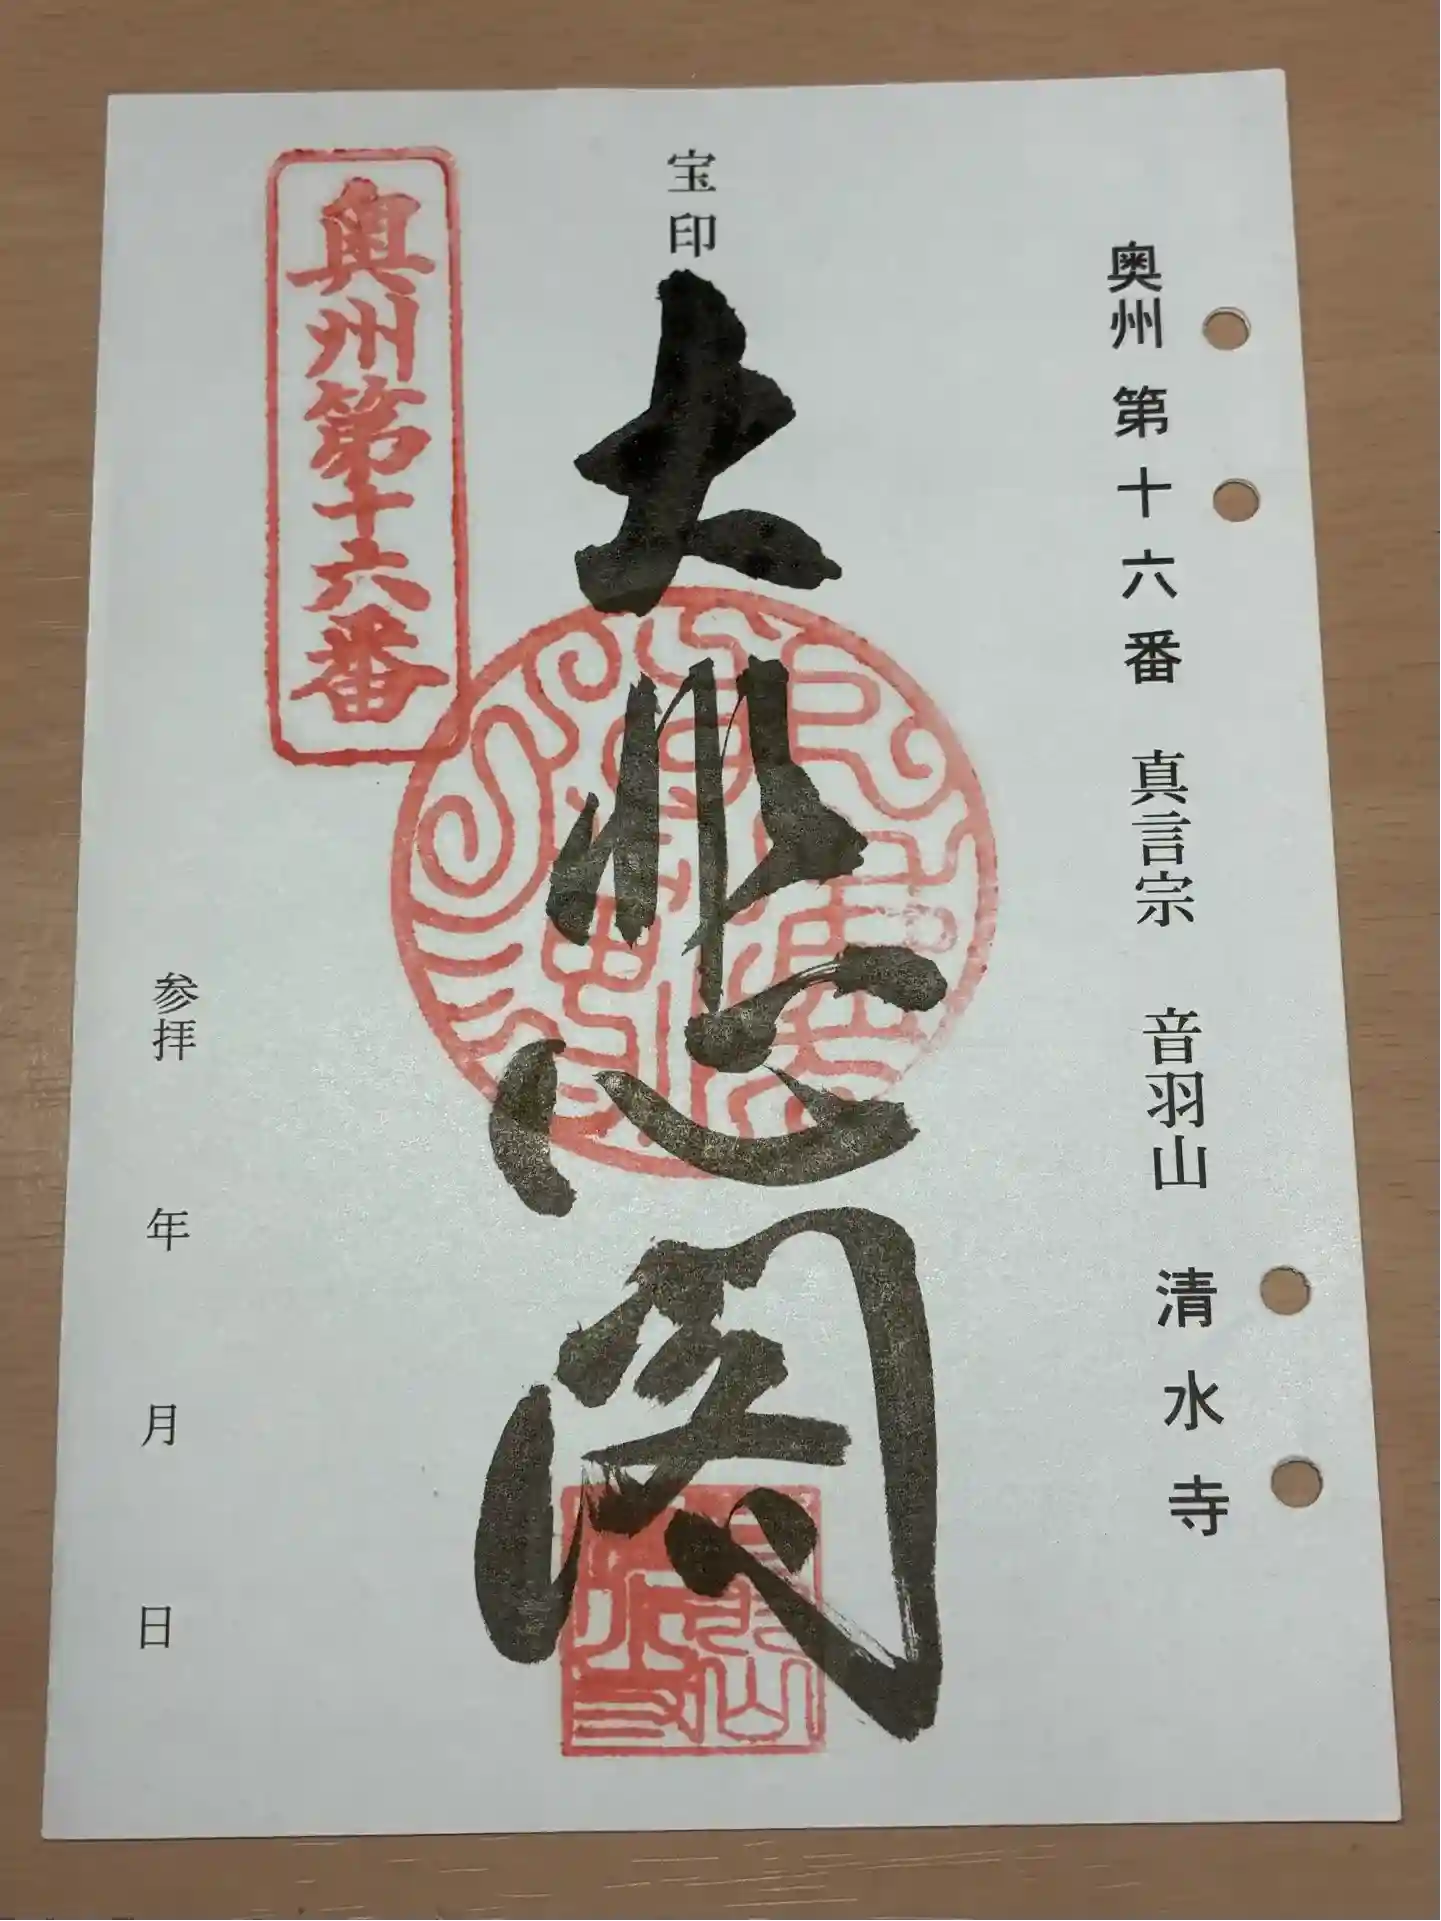 奥州第十六番 真言宗 音羽山 清水寺
宝印
大悲閣
奥州第十六番
参拝 年 月 日